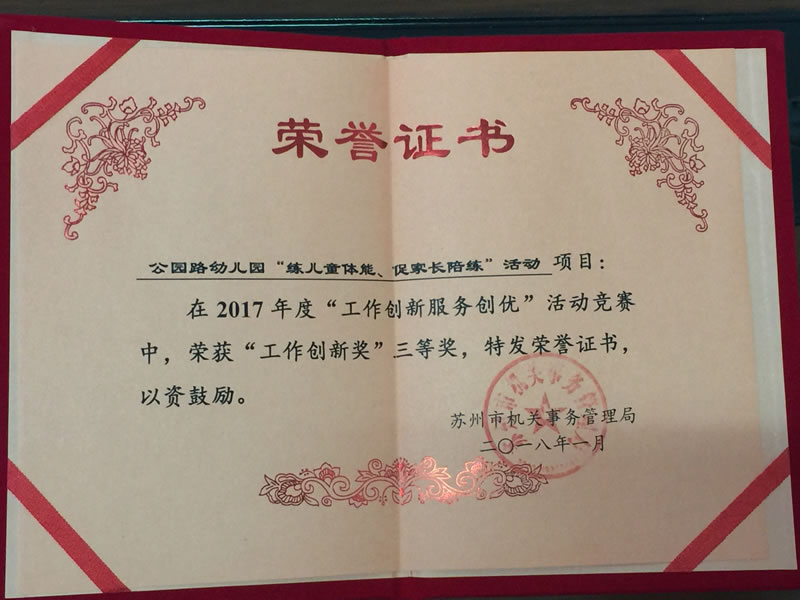 荣誉证书
公园路幼儿园“练儿童体能、促家长陪练”活动 项目：
在2017年度“工作创新服务创优”活动竞赛
中，荣获“工作创新奖”三等奖，特发荣誉证书，
以资鼓励。
苏州市机关事务管理局
二〇一八年一月